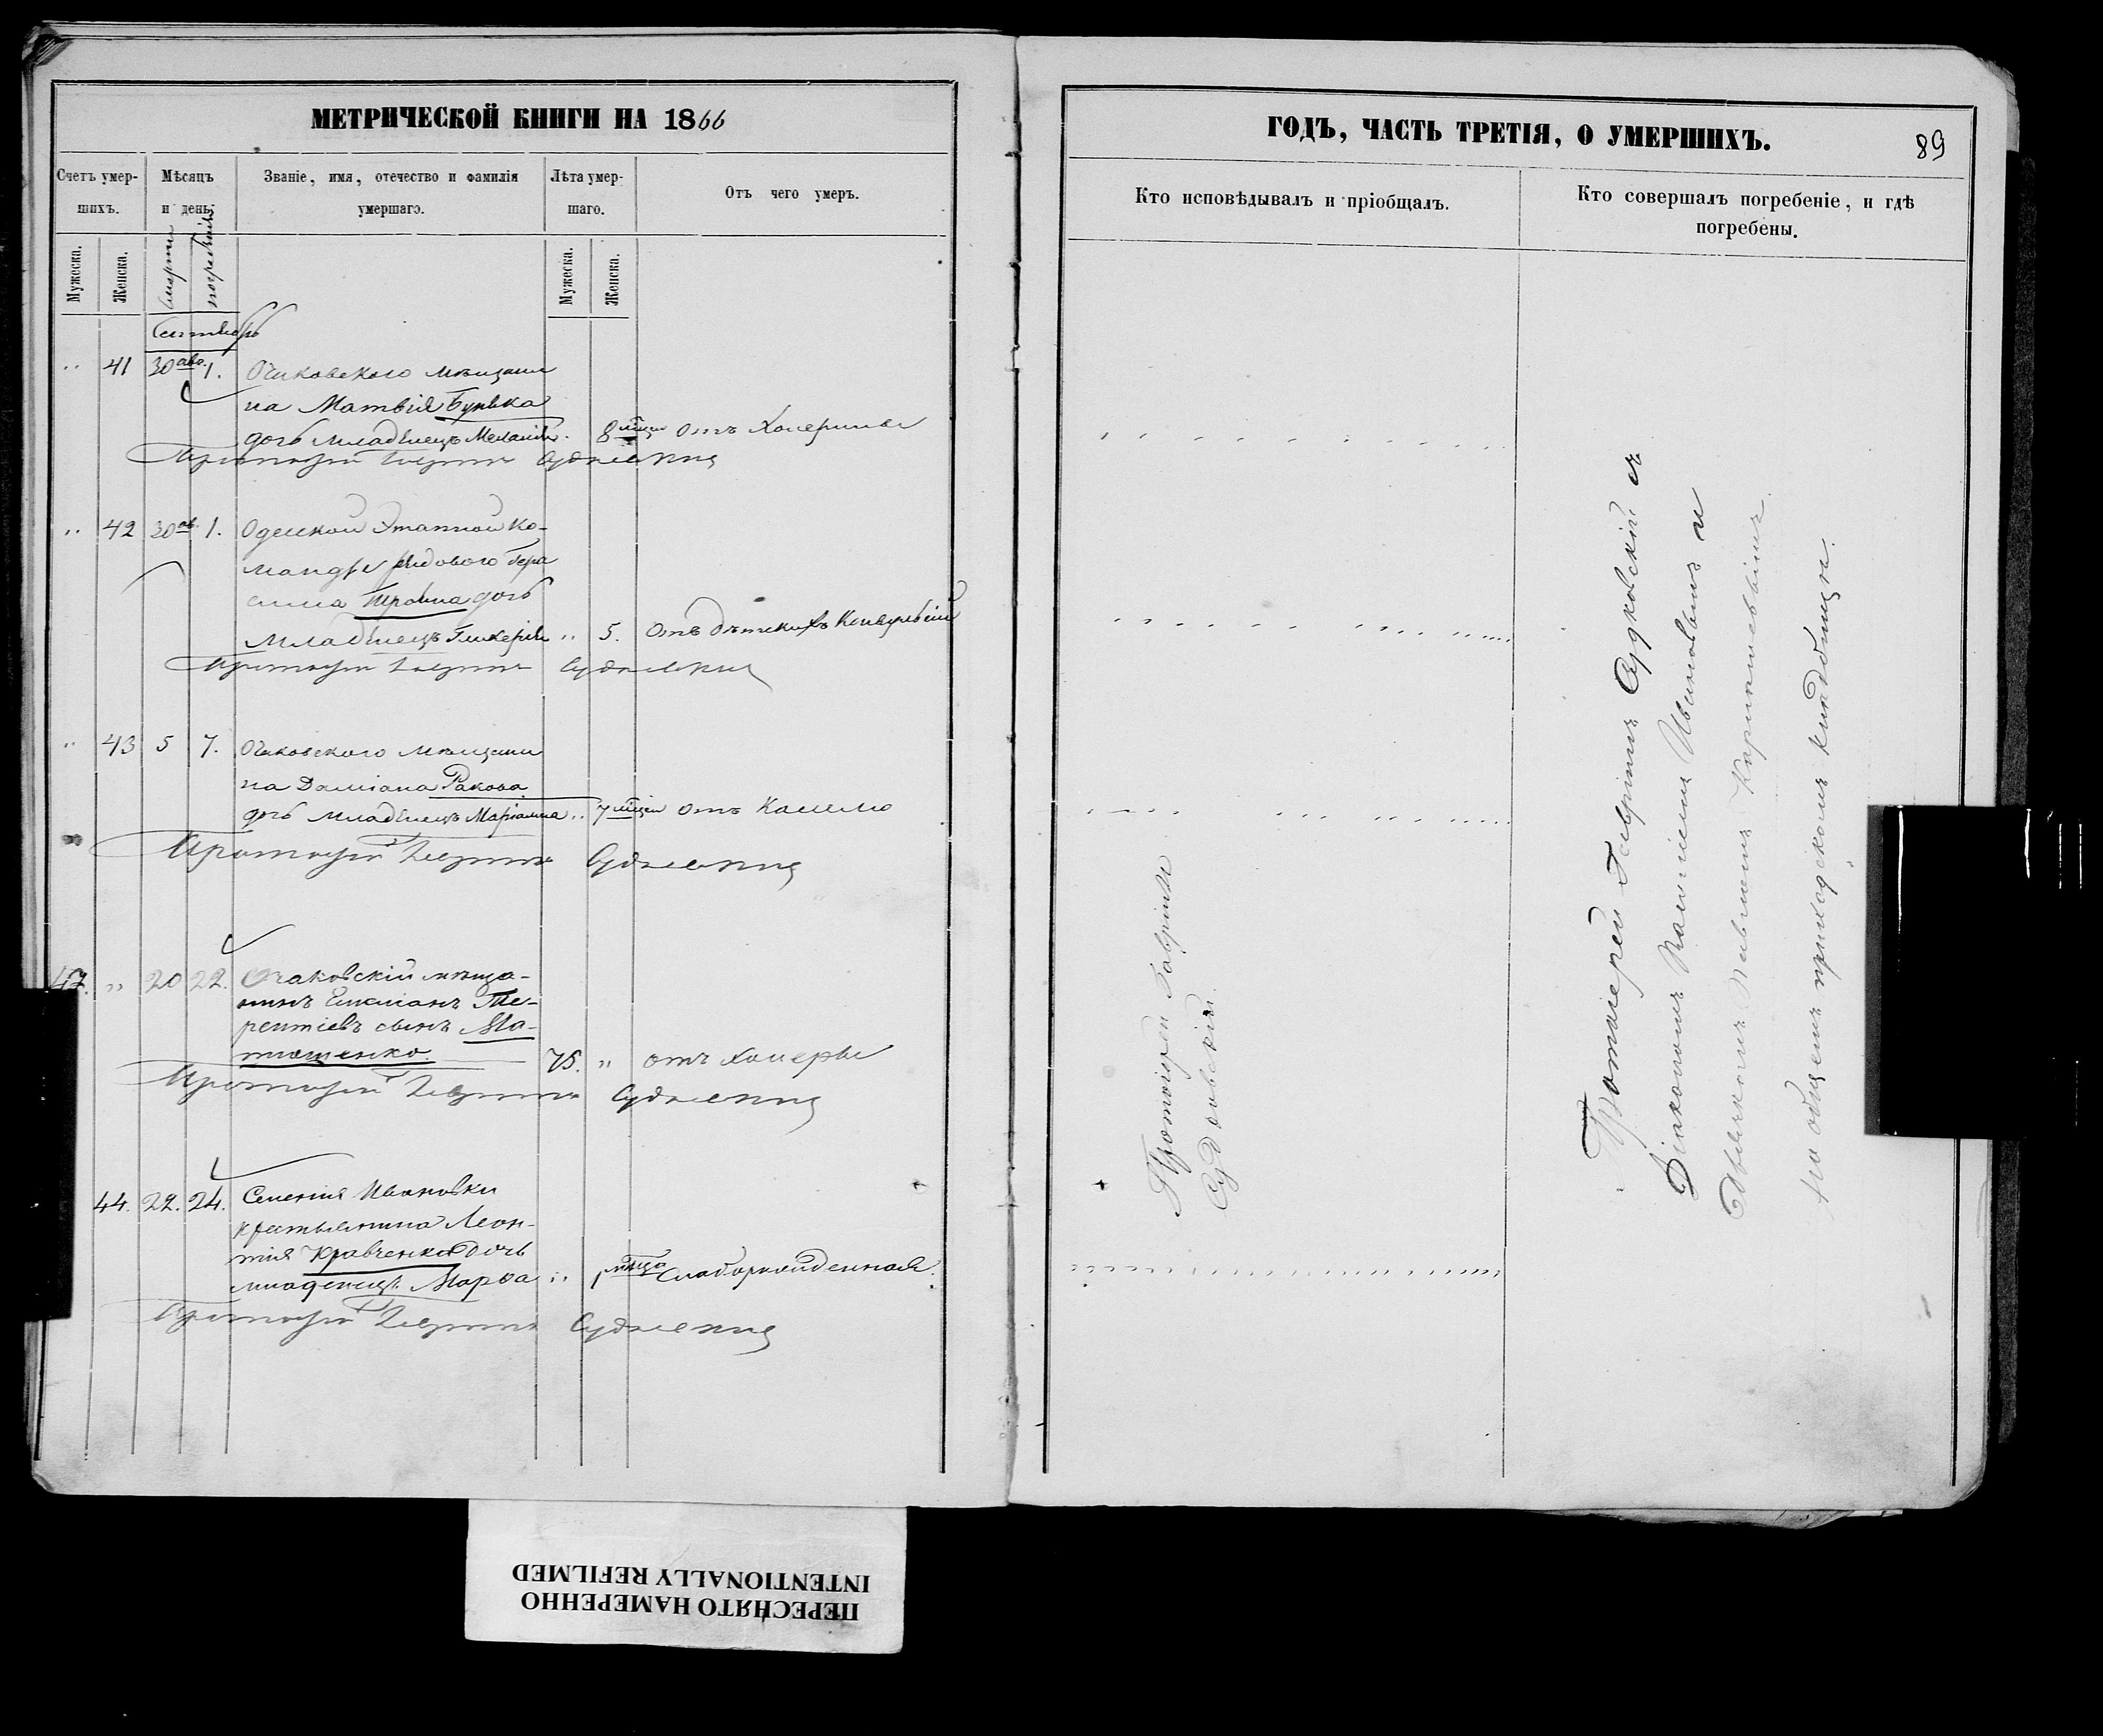 МЕТРИЧЕСКОЙ КНИГИ НА 1866
Счетъ умершихъ.
Мѣсяцъ и день.
Званіе, имя, отечество и фамилія умершаго.
Лѣта умершаго.
Отъ чего умеръ.
Мужеска.
Женска.
смерти
погребенія
Мужеска.
Женска.
Сентябрь
41 30 авг. 1. Очаковскаго мѣщани
на Матвія
дочь младенецъ Меланія 8 мѣсяц отъ Холерины
Протоіерей Гавріилъ Судковскій
42 30 ав. 1. Одесской Этапной Ко-
манды рядового Гера
сима дочь
младенецъ Гликерія 5. Отъ дѣтскихъ Конвульсій
Протоіерей Гавріилъ Судковскій
43 5 7. Очаковского мѣщани
на Даміана Ракова
дочь младенецъ Маріамна 7 мѣсяц отъ Кашлю
Протоіерей Гавріилъ Судковскій
47. " 20 22. Очаковскій мѣща-
нинъ Емеліанъ Те-
рентіевъ сынъ Ма-
тющенко 75. " отъ холеры
Протоіерей Гавріилъ Судковскій
44. 22. 24. Селенія Ивановки
крестьянина Леон-
тія Кравченка дочь
младенецъ Марѳа 1 мѣсяца Слаборожденная.
Протоіерей Гавріилъ Судковскій
ГОДЪ, ЧАСТЬ ТРЕТІЯ, О УМЕРШИХЪ.
89
Кто исповѣдывалъ и пріобщалъ.
Кто совершалъ погребеніе, и гдѣ
погребены.
Протоіерей Гавріилъ
Судковскій.
Протоіерей Гавріилъ Судковскій съ
Діакономъ и
на общемъ приходскомъ кладбищѣ.
ПЕРЕСНЯТО НАМЕРЕННО
INTENTIONALLY REFILMED